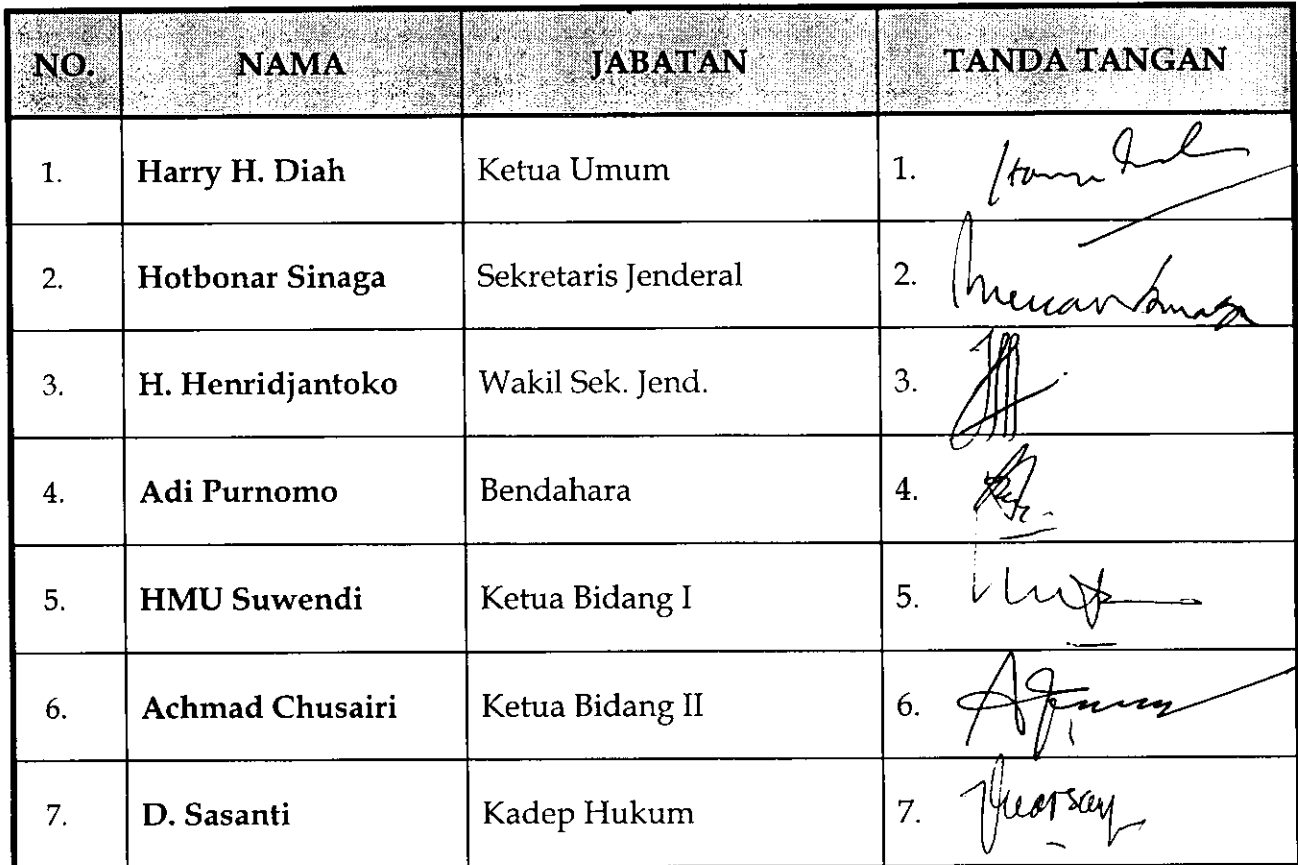 NO. NAMA JABATAN TANDA TANGAN
1. Harry H. Diah Ketua Umum 1.
2. Hotbonar Sinaga Sekretaris Jenderal 2.
3. H. Henridjantoko Wakil Sek. Jend. 3.
4. Adi Purnomo Bendahara 4.
5. HMU Suwendi Ketua Bidang I 5.
6. Achmad Chusairi Ketua Bidang II 6.
7. D. Sasanti Kadep Hukum 7.